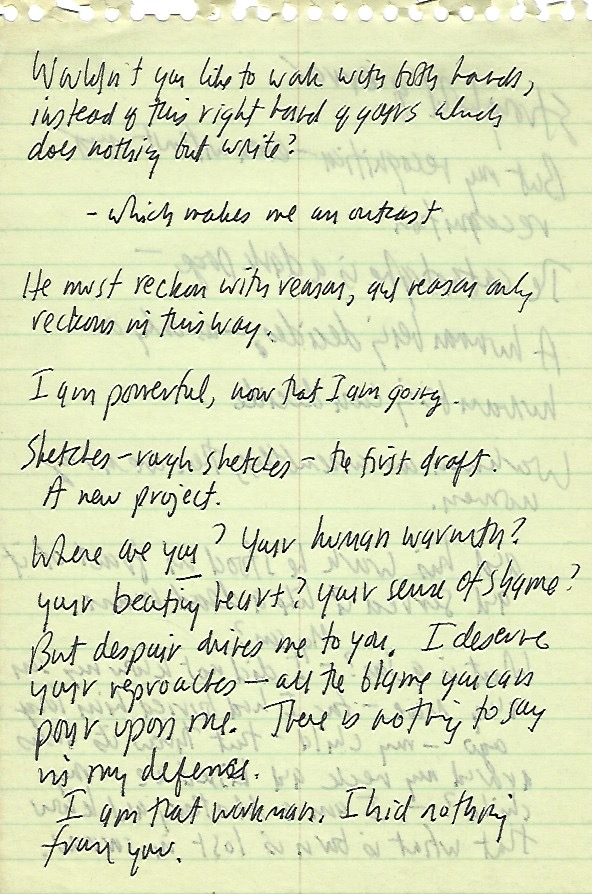 Wouldn't you like to work with both hands,
instead of this right hand of yours which
does nothing but write?
- which makes me an outcast
He must reckon with reason, and reason only
reckons in this way.
I am powerful, now that I am going.
Sketches – rough sketches – the first draft.
A new project.
Where are you? Your human warmth?
your beating heart? your sense of shame?
But despair drives me to you. I deserve
your reproaches – all the blame you can
pour upon me. There is nothing to say
in my defense.
I am that workman. I hid nothing
from you.